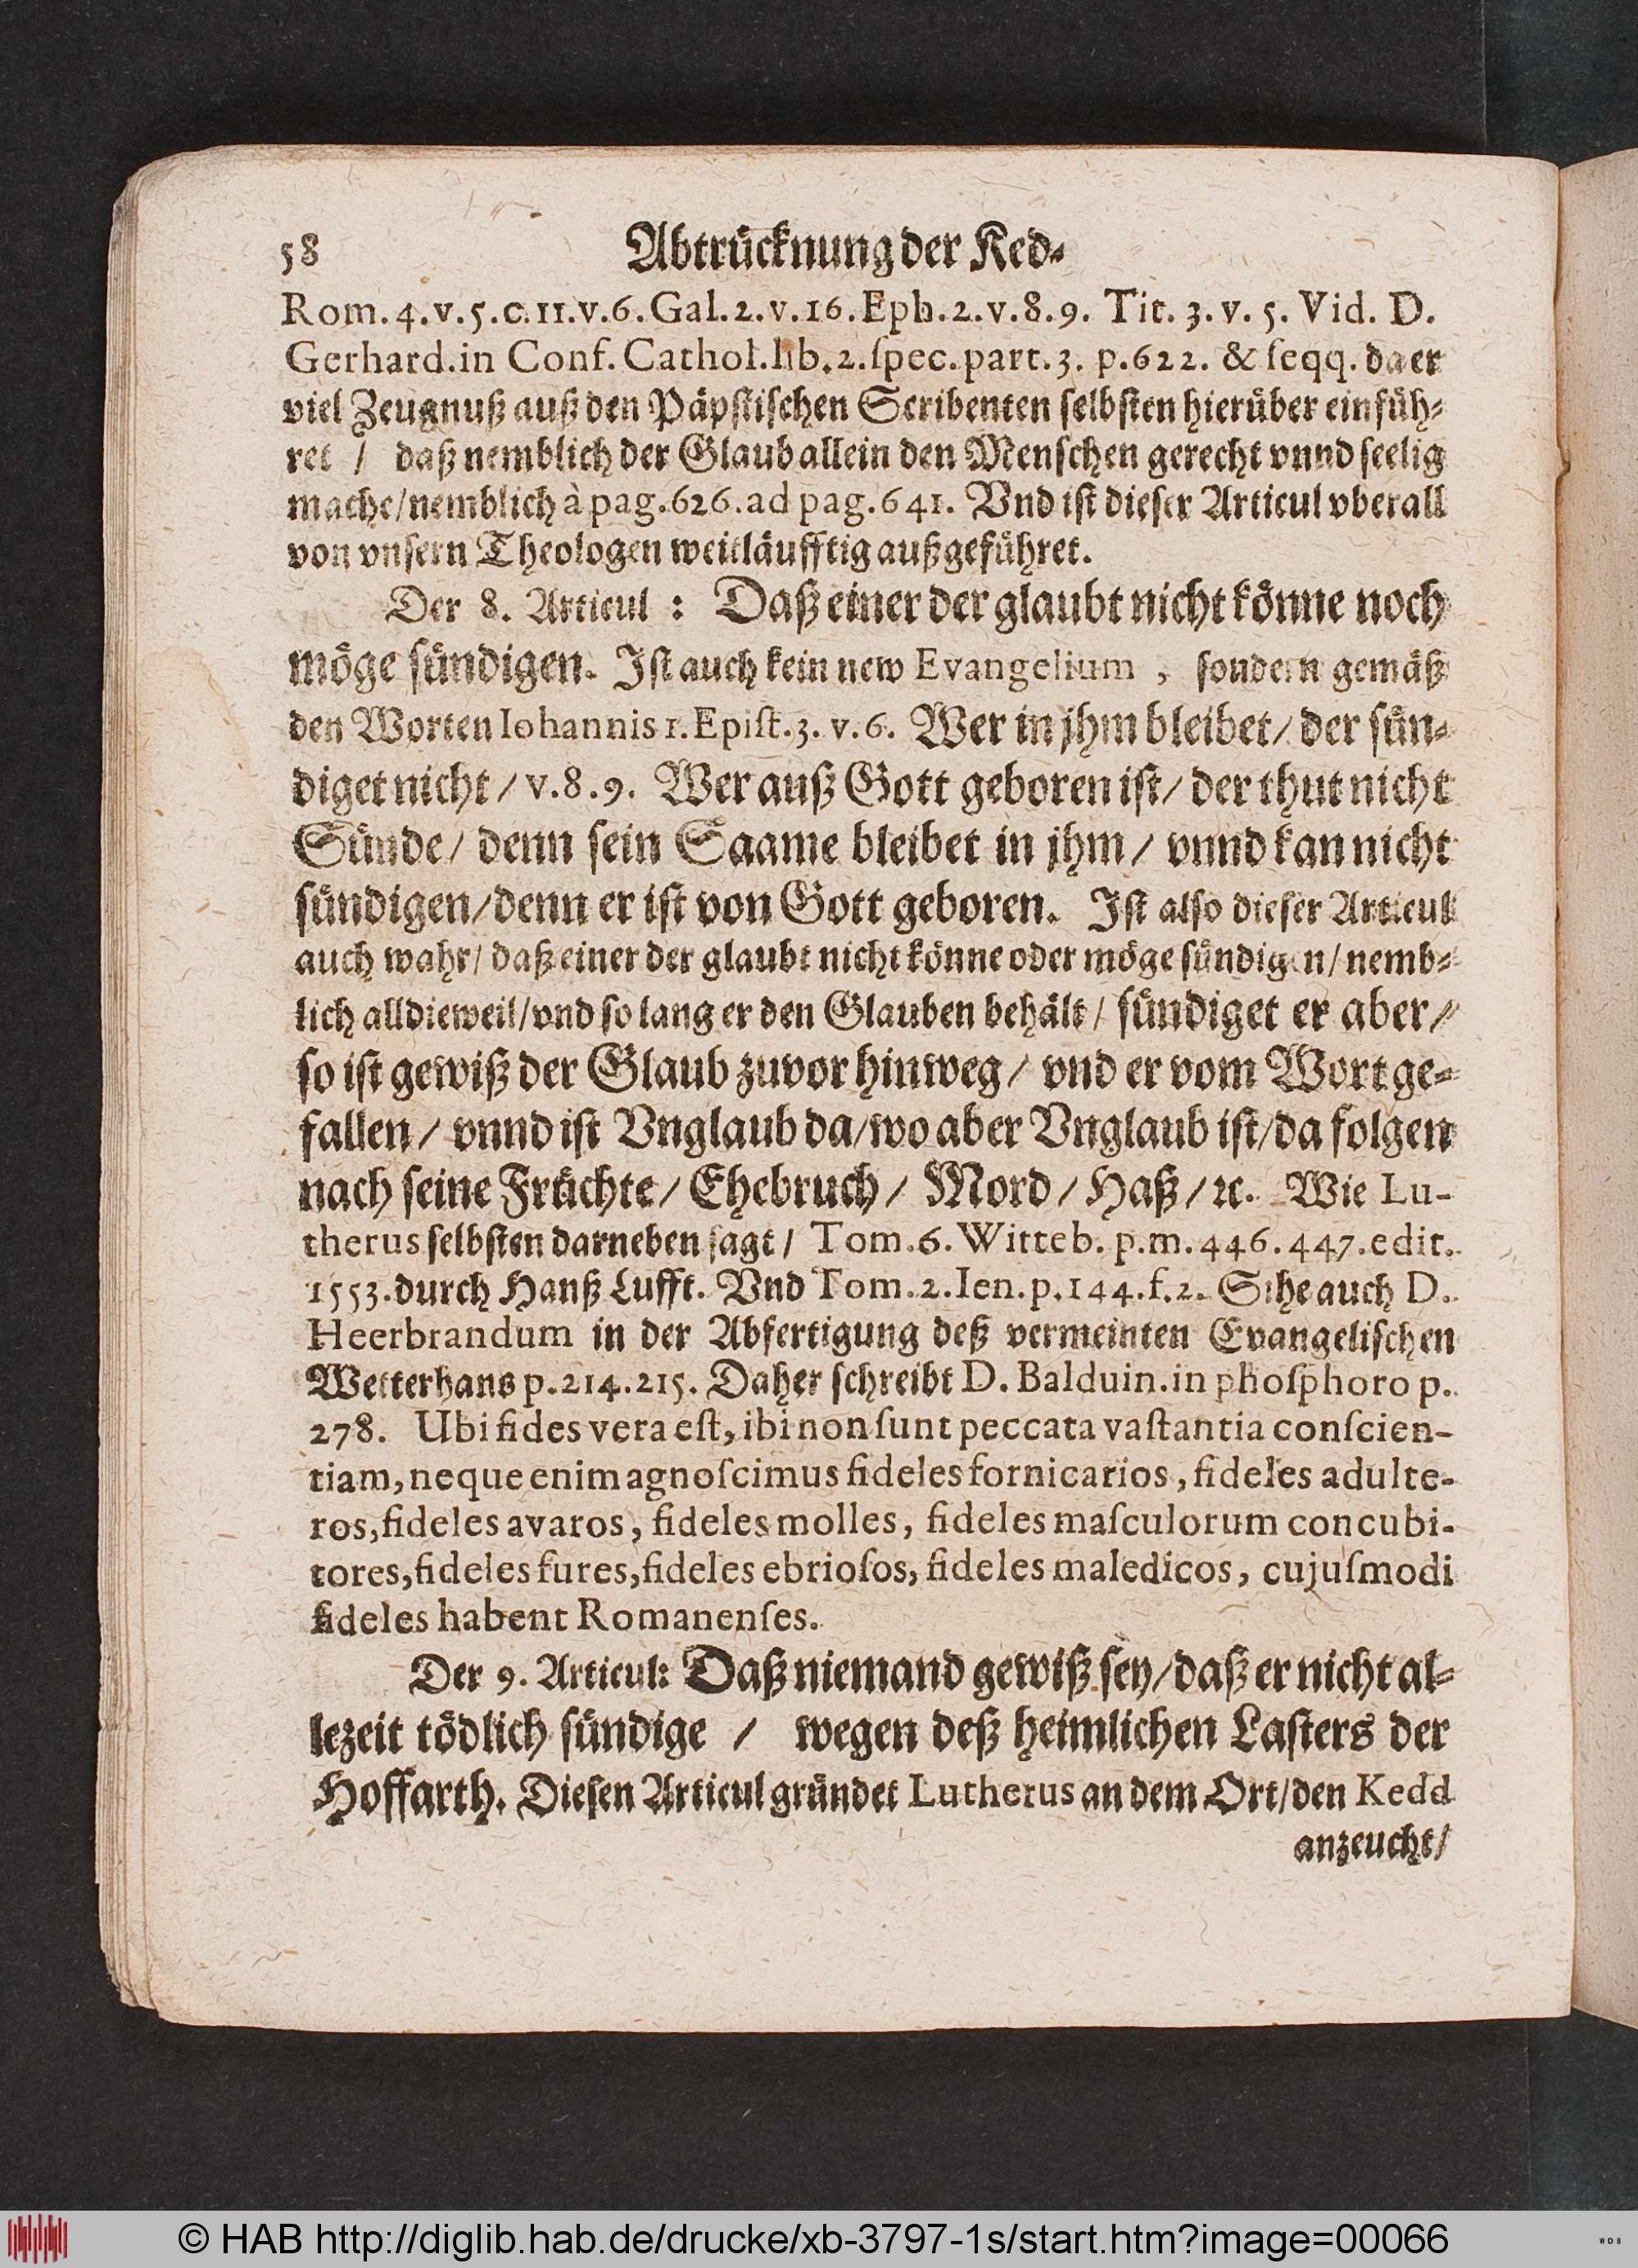 58 Abtrücknung der Ked⸗
Rom. 4. v. 5. c. 11. v. 6. Gal. 2. v. 16. Eph. 2. v. 8. 9. Tit. 3. v. 5. Vid. D.
Gerhard. in Conf. Cathol. lib. 2. ſpec. part. 3. p. 622. & ſeqq. da er
viel Zeugnuß auß den Päpſtiſchen Scribenten ſelbſten hierüber einfüh⸗
ret / daß nemblich der Glaub allein den Menſchen gerecht vnnd ſeelig
mache / nemblich à pag. 626. ad pag. 641. Vnd iſt dieſer Articul vberall
von vnſern Theologen weitläufftig außgeführet.
Der 8. Articul : Daß einer der glaubt nicht könne noch
möge ſündigen. Iſt auch kein new Evangelium , ſondern gemäß
den Worten Iohannis 1. Epiſt. 3. v. 6. Wer in jhm bleibet / der ſün⸗
diget nicht / v. 8. 9. Wer auß Gott geboren iſt / der thut nicht
Sünde / denn ſein Saame bleibet in jhm / vnnd kan nicht
ſündigen / denn er iſt von Gott geboren. Iſt alſo dieſer Articul
auch wahr / daß einer der glaubt nicht könne oder möge ſündigen / nemb⸗
lich alldieweil / vnd ſo lang er den Glauben behält / ſündiget er aber /
ſo iſt gewiß der Glaub zuvor hinweg / vnd er vom Wort ge⸗
fallen / vnnd iſt Vnglaub da / wo aber Vnglaub iſt / da folgen
nach ſeine Früchte / Ehebruch / Mord / Haß / ꝛc. Wie Lu-
therus ſelbſten darneben ſagt / Tom. 6. Witteb. p. m. 446. 447. edit.
1553. durch Hanß Lufft. Vnd Tom. 2. Ien. p. 144. f. 2. Sihe auch D.
Heerbrandum in der Abfertigung deß vermeinten Evangeliſchen
Wetterhans p. 214. 215. Daher ſchreibt D. Balduin. in phoſphoro p.
278. Ubi fides vera eſt, ibi non ſunt peccata vaſtantia conſcien-
tiam, neque enim agnoſcimus fideles fornicarios, fideles adulte-
ros, fideles avaros, fideles molles, fideles maſculorum concubi-
tores, fideles fures, fideles ebrioſos, fideles maledicos, cujuſmodi
fideles habent Romanenſes.
Der 9. Articul: Daß niemand gewiß ſey / daß er nicht al⸗
lezeit tödlich ſündige / wegen deß heimlichen Laſters der
Hoffarth. Dieſen Articul gründet Lutherus an dem Ort / den Kedd
anzeucht /
© HAB http://diglib.hab.de/drucke/xb-3797-1s/start.htm?image=00066
WDB